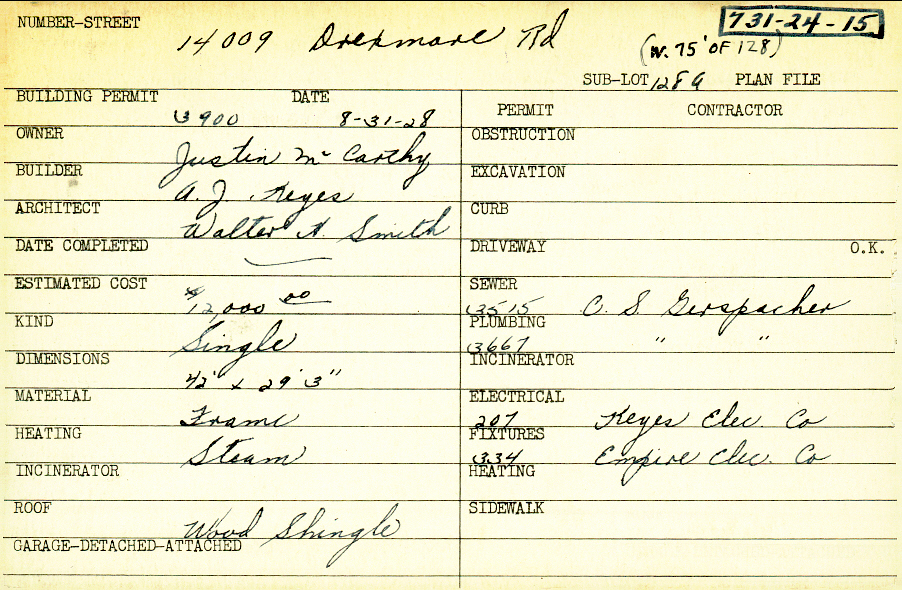 NUMBER-STREET
14009 Drexmore Rd
731-24-15
(W. 75' OF 128)
SUB-LOT 128A PLAN FILE
BUILDING PERMIT DATE
3900 8-31-28
OWNER
Justin Mc Carthy
BUILDER
A. J. Keyes
ARCHITECT
Walter A. Smith
DATE COMPLETED
ESTIMATED COST
$12,000 00
KIND
Single
DIMENSIONS
42' x 29' 3"
MATERIAL
Frame
HEATING
Steam
INCINERATOR
ROOF
Wood Shingle
GARAGE-DETACHED-ATTACHED
PERMIT CONTRACTOR
OBSTRUCTION
EXCAVATION
CURB
DRIVEWAY O.K.
SEWER
3515 C. S. Gerspacher
PLUMBING
3667 " "
INCINERATOR
ELECTRICAL
207 Keyes Elec. Co
FIXTURES
334 Empire Elec. Co
HEATING
SIDEWALK